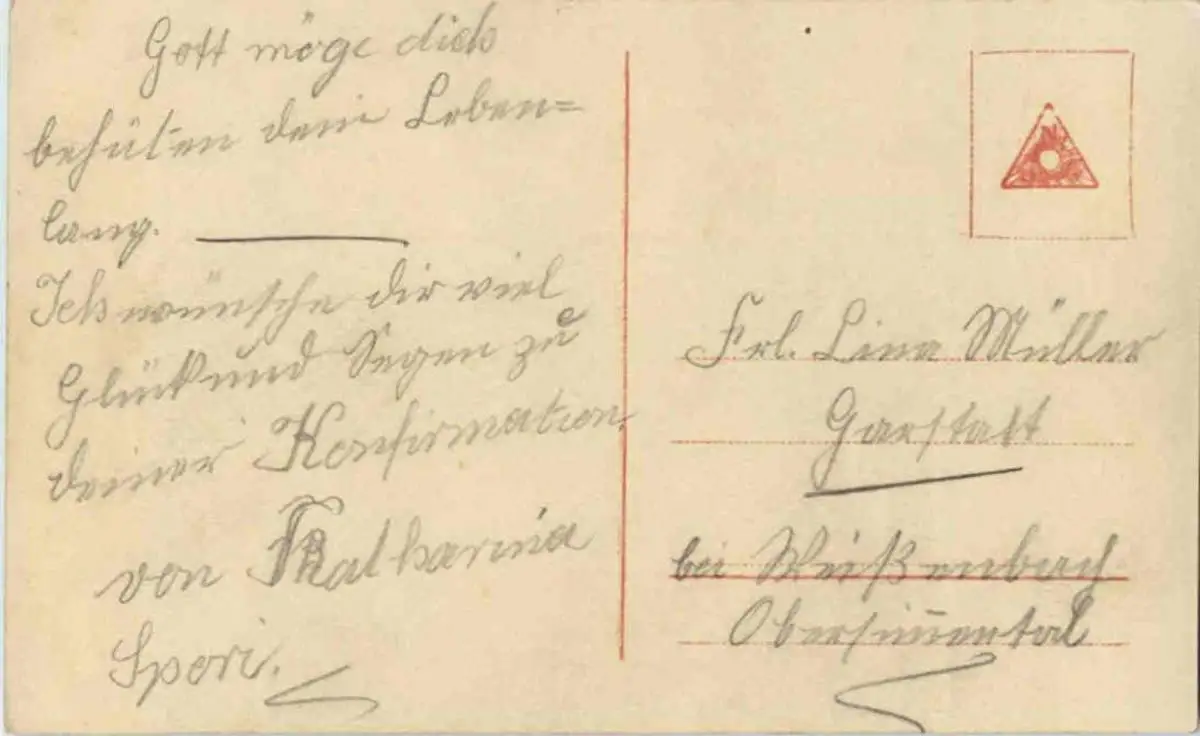 Gott möge dich
behüten dein Leben=
lang.
Ich wünsche dir viel
Glück und Segen zu
deiner Konfirmation.
von Katharina
Spori.
Frl. Lina Müller
Garstatt
bei Weißenbach
Obersimmental